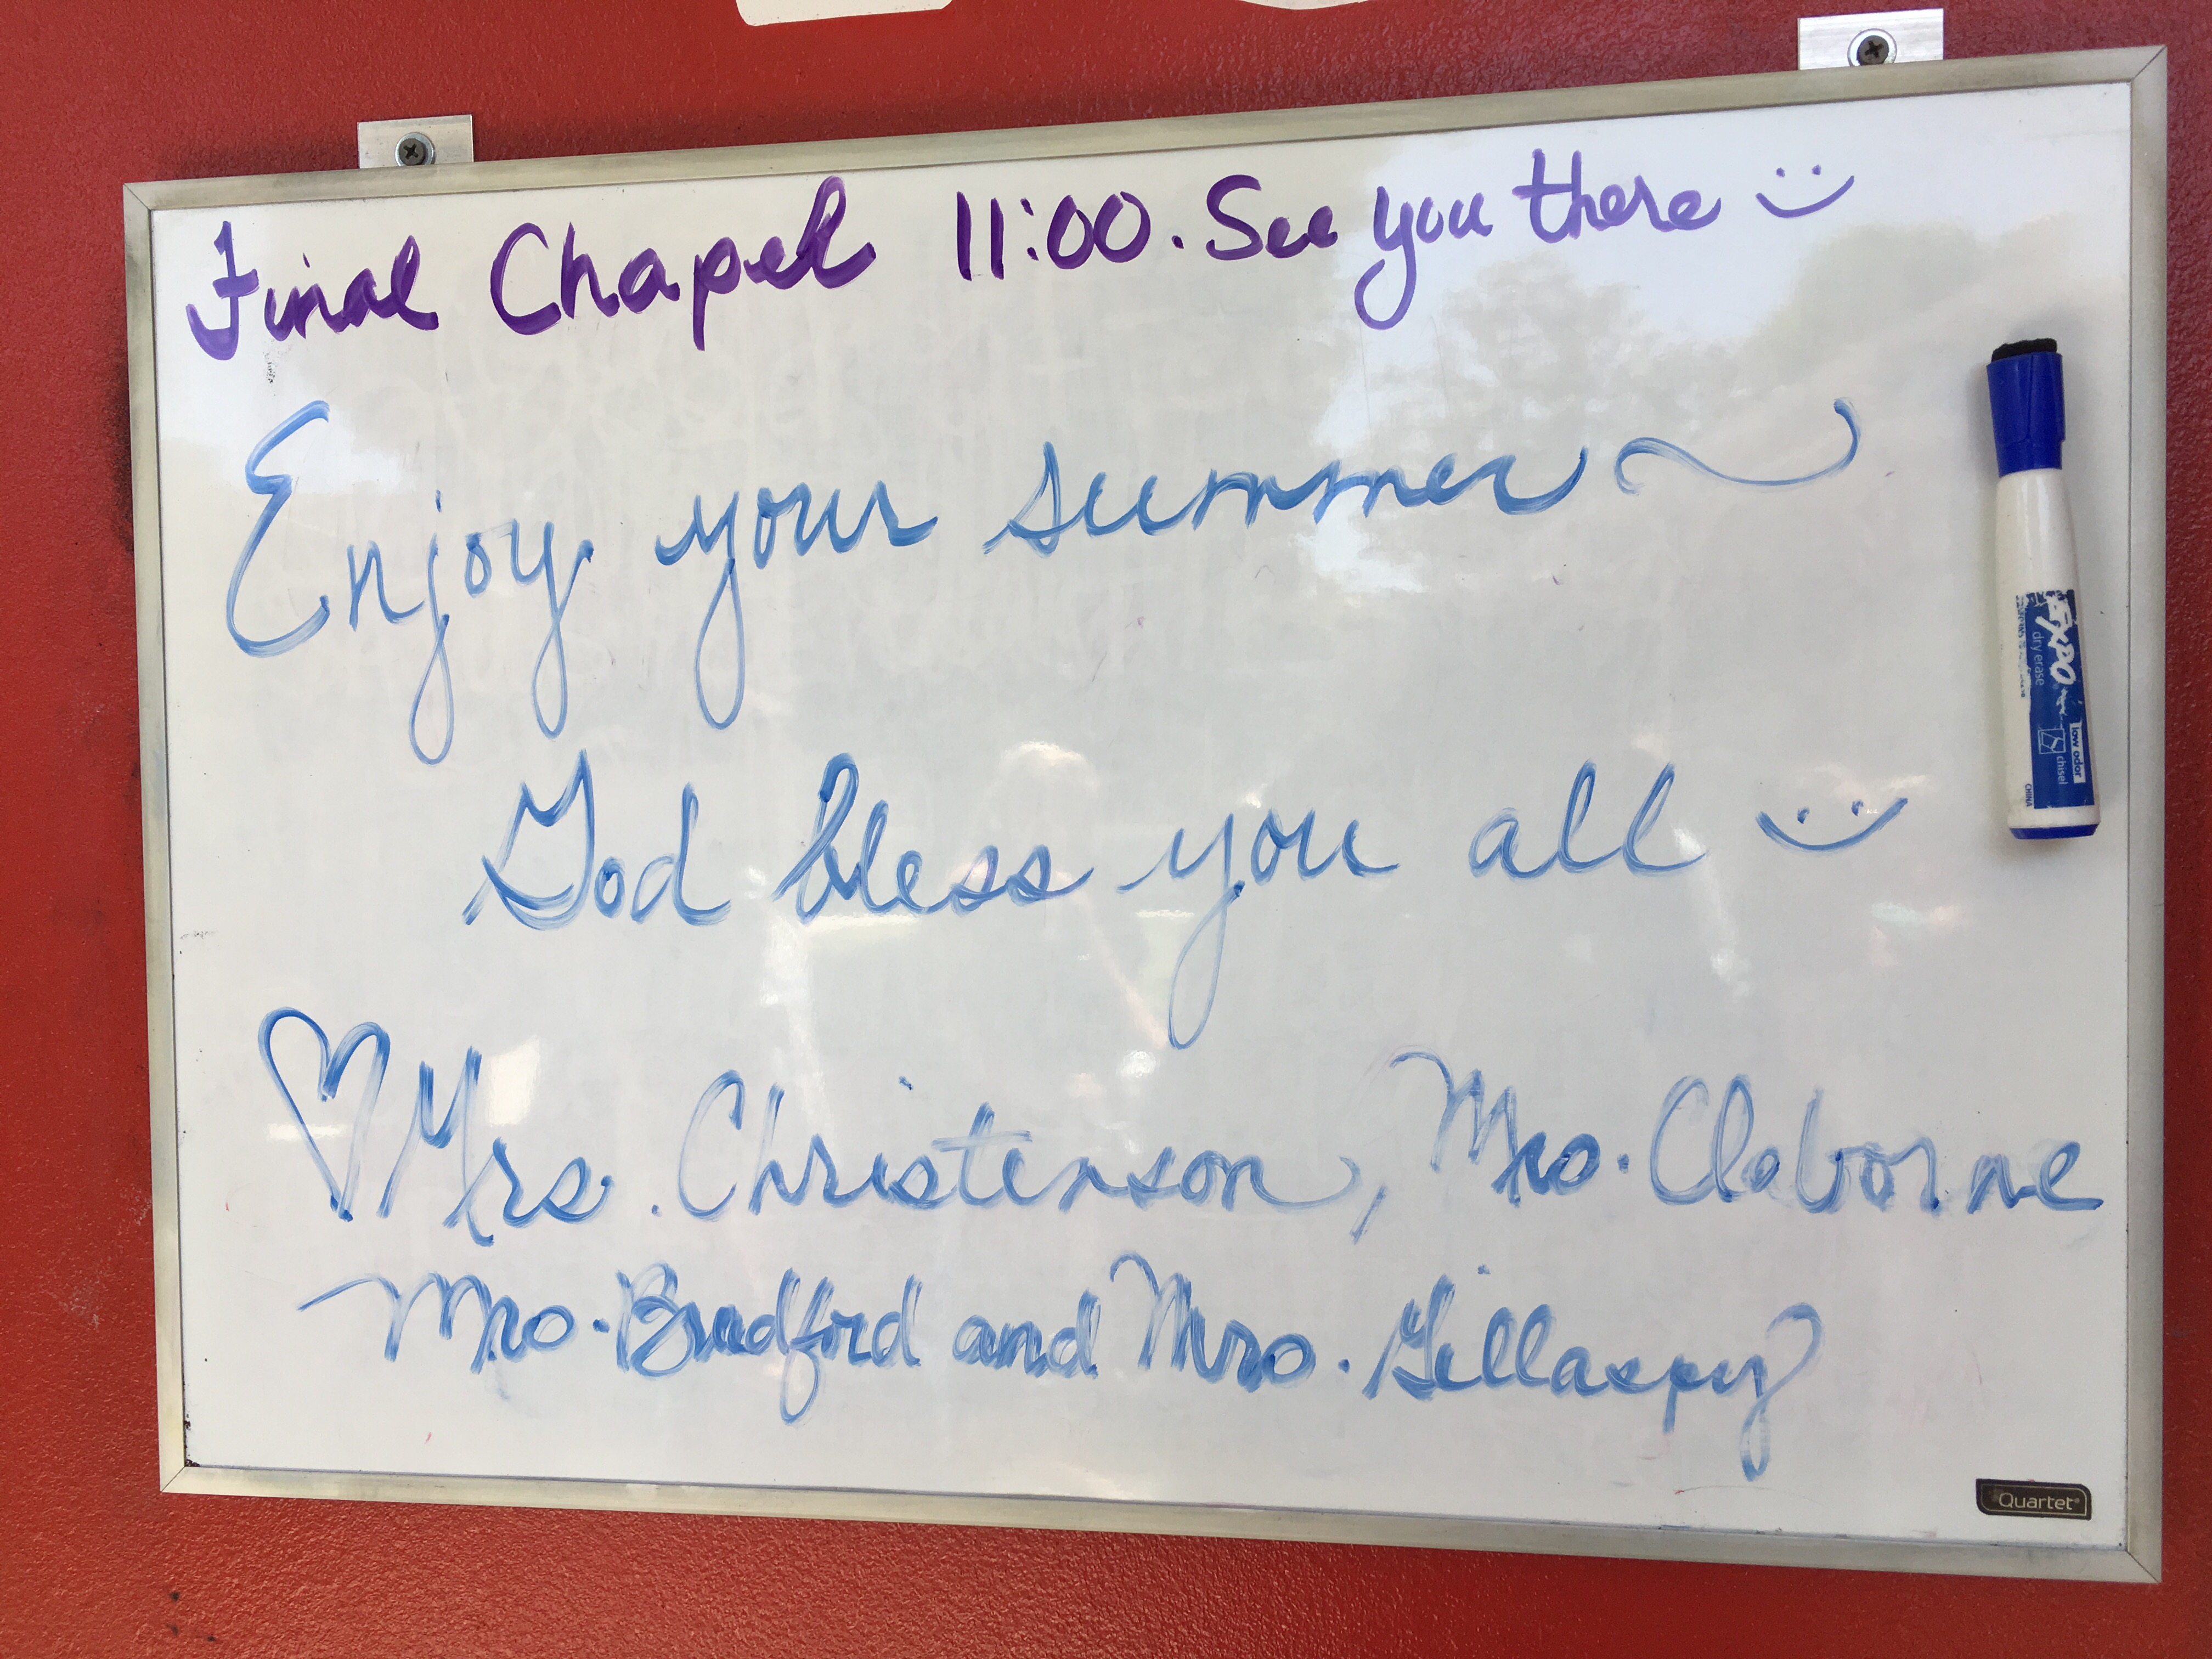 Final Chapel 11:00. See you there
Enjoy your summer
God bless you all
Mrs. Christenson, Mrs. Claborne
Mrs. Bradford and Mrs. Gillaspy
EXPO
dry erase
low odor
chisel
CHINA
Quartet